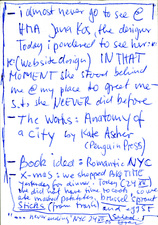 - i almost never go to see @
HHA Java Kos, the designer
Today i pondered to see her in
re: (website design) IN THAT
MOMENT she stood behind
me @ my place to greet me -
s.th she NEEVER did before
- The Works: Anatomy of
a City by Kate Asher
(Penguin Press)
- Book idea: Romantic NYC
- X-mas: we shopped
yesterday for dinner. Today (24
she did not have time to cook so we
ate mashed potatoes, brussel sprout
sticks (from trash) and
NYC 24